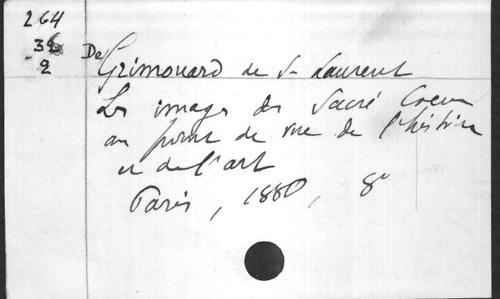 264
36
2
De Grimouard de St Laurent
Les images du Sacré Coeur
au point de vue de l'histoire
et de l'art
Paris, 1880, 8º